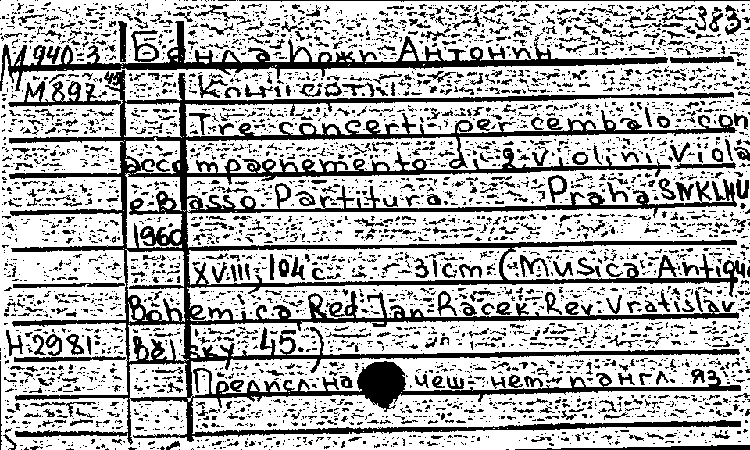 383
М940-3 Бенда, Иржи Антонин
М897 45 Концерты
Tre concerti per cembalo con
accompagnemento di 2 violini, Viola
e Basso. Partitura. Praha, SNKLHU
1960
XVIII, 104 с. 31cm. (Musica Antiqua
Bohemica. Red. Jan Racek. Rev. Vratislav
Н.2981 Bělský. 45.)
Предисл. на чеш., нем. и англ. яз.